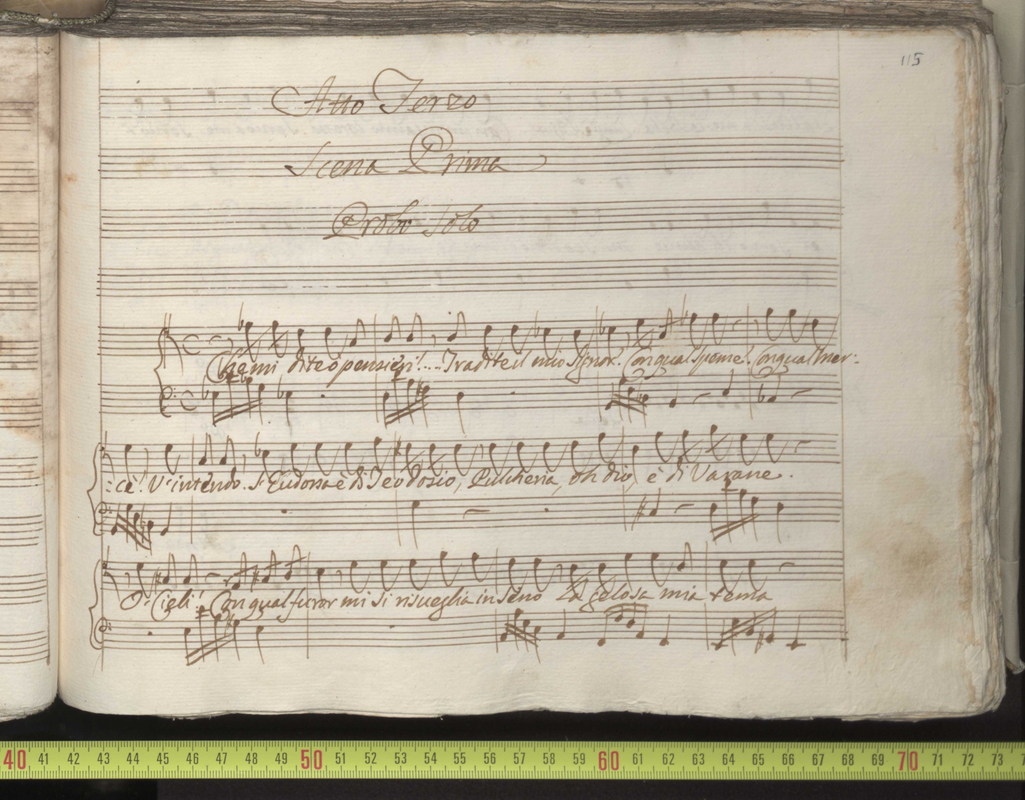 115
Atto Terzo
Scena Prima
Probo Solo
Che mi dite ò pensieri!... Tradite il mio Signor! Con qual speme! Con qual mer-
:cè! V'intendo. S'Eudossa è di Teodosio, Pulcheria, oh dio, è di Varane.
O' Cieli! Con qual furor mi si risueglia in seno La gelosa mia tema
40 41 42 43 44 45 46 47 48 49 50 51 52 53 54 55 56 57 58 59 60 61 62 63 64 65 66 67 68 69 70 71 72 73